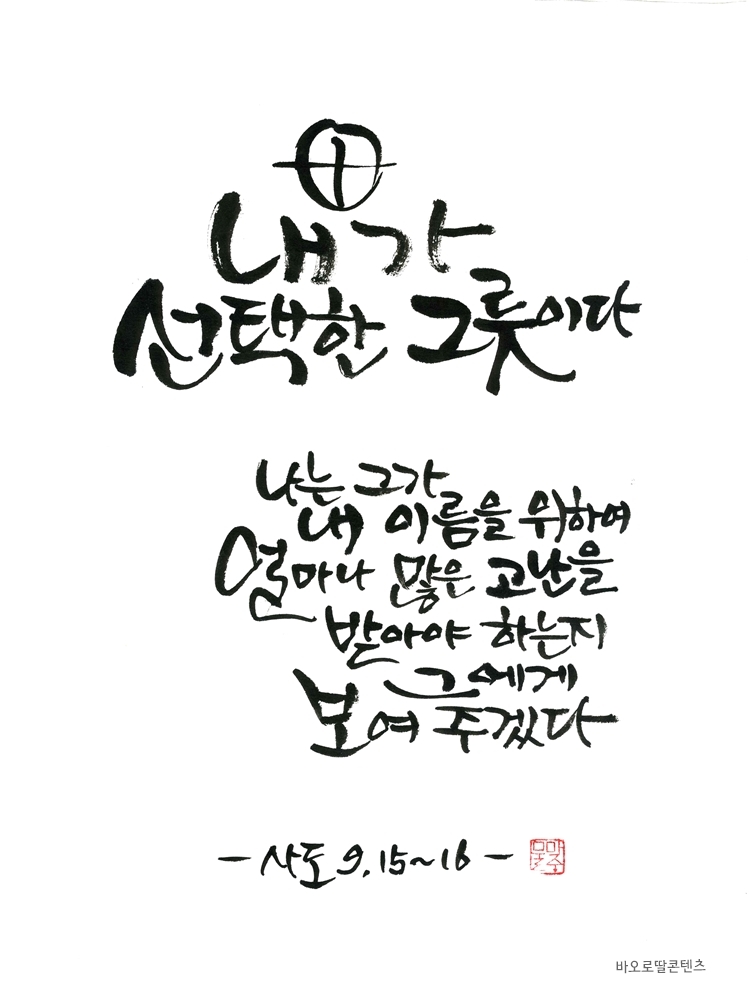 내가
선택한 그릇이다
나는 그가
내 이름을 위하여
얼마나 많은 고난을
받아야 하는지
그에게
보여 주겠다
- 사도 9,15~16 -
바오로딸콘텐츠